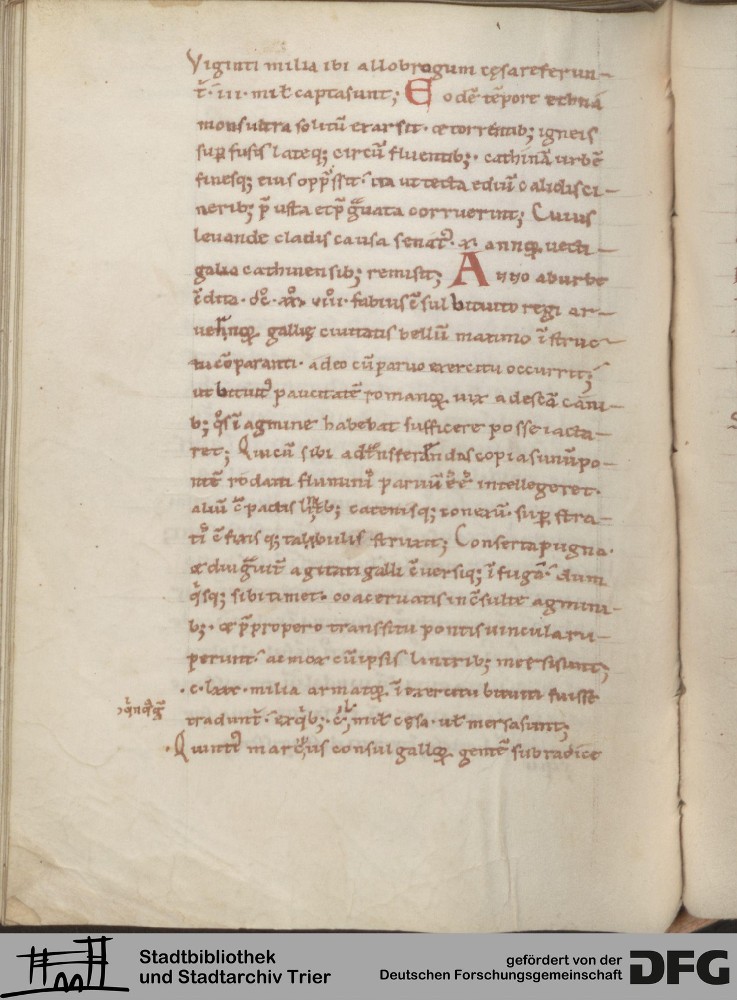 Viginti milia ibi allobrogum cęsa referun-
t̄· iii· mił capta sunt; Eodē tēpore ethna
mons ultra solitū exarsit· & torrentib; igneis
sup̄ fusis lateq; circū fluentib;· cathinā urbē
finesq; eius opp̄ssit· ita ut tecta ediū calidis ci-
nerib; p̄ usta et p̄ g̃uata corruerint; Cuius
leuande cladis causa senat᷒· x· annoꝝ uecti-
galia cathinensib; remisit; Anno ab urbe
c̄dita· dc̊· xxͦ· viiͦi· fabius c̄sul bituito regi ar-
uernoꝝ gallię ciuitatis bellū maximo īstruc-
tu cōparanti· adeo cū paruo exercitu occurrit;
ut bituit᷒ paucitatē romanoꝝ uix ad escā cani-
b; q̊s ī agmine habebat sufficere posse iacta-
ret; Qui cū sibi ad t̄nsferendas copias unū po-
ntē rodani fluminis paruū ēē intellegeret·
aliū c̄pactis lintrib; catenisq; conexū· sup̄ stra-
tis c̄fixisq; tabulis struxit; Conserta pugna·
& diu g̃uit̄ agitati galli c̄uersiq; ī fugā· dum
q̊sq; sibi timet· coaceruatis inc̄sulte agmini-
b;· & p̄propero transsitu pontis uincula ru-
perunt· ac mox cū ipsis lintrib; mersi sunt;
· c· lxxx· milia armatoꝝ ī exercitu bituiti fuisse
tradunt̄· ex q̊b;· cͭl· mił cęsa· uł mersa sunt;
q̊nq̊g̃
· Quint᷒ marcius consul galloꝝ gentē sub radice
Stadtbibliothek
und Stadtarchiv Trier
gefördert von der
Deutschen Forschungsgemeinschaft
DFG